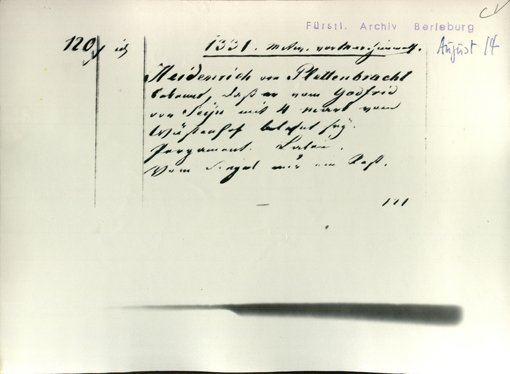 Fürstl. Archiv Berleburg
August 14
120
1331.
Heidenrich von Plettenbracht
bekennt, daß er vom Godfrid
von Seyn mit 4 mark vom
belehnt sey.
Pergament. Latein.
Vom Siegel nur ein Rest.
111